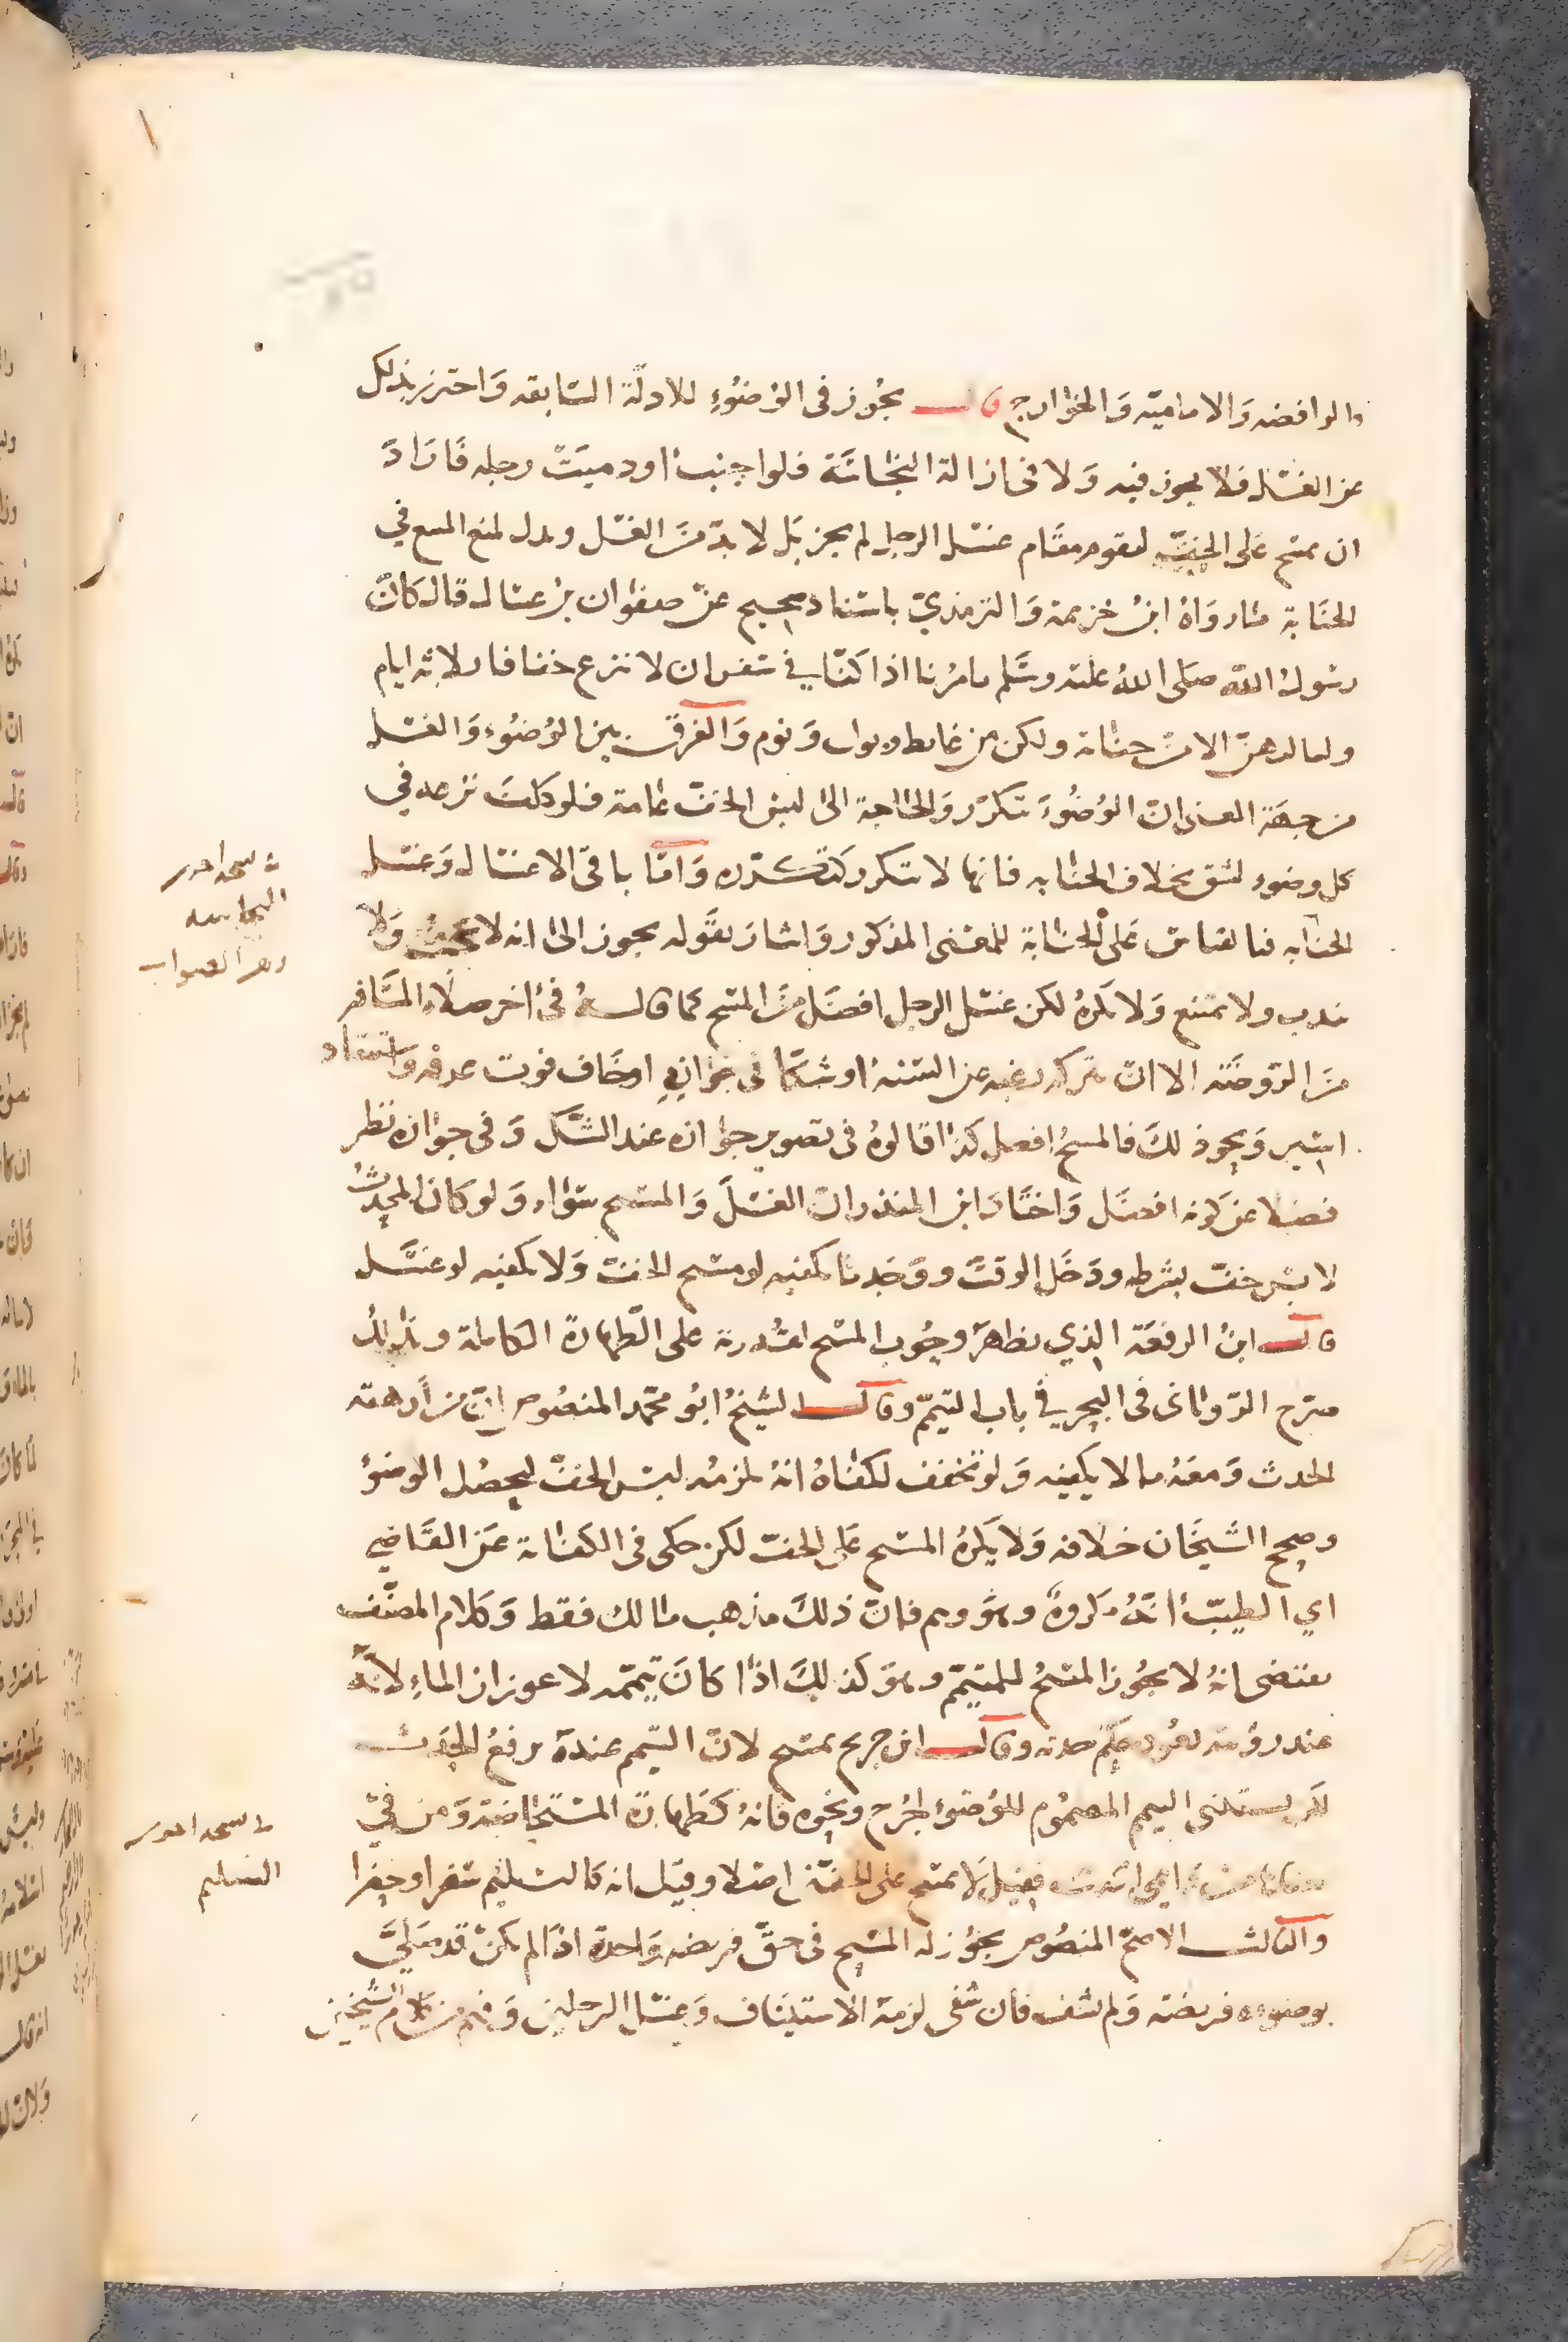 والرافضه والاماميه والخوارج قال يجوز في الوضوء للادلة السابقه واحترز بذلك
عن الغسل فلا يجوز فيه ولا في ازالة النجاسة فلو اجنب او دميت رجله فاراد
ان يمسح على الخف ليقوم مقام غسل الرجل لم يجز بل لا بد من الغسل ويدل لمنع المسح في
الجنابة ما رواه ابن خزيمة والترمذي باسناد صحيح عن صفوان بن عسال قال كان
رسول الله صلى الله عليه وسلم يامرنا اذا كنا في سفر ان لا ننزع خفافنا ثلاثه ايام
ولياليهن الا من جنابة ولكن من غايط وبول ونوم والفرق بين الوضوء والغسل
من جهة المعنى ان الوضوء يتكرر والحاجة الى لبس الخف عامة فلو كلف نزعه في
كل وضوء لشق بخلاف الجنابه فانها لا تتكرر كتكرره واما باقي الاغسال وغسل
الجنابه فبالقياس على الجنابة للمعنى المذكور واشار بقوله يجوز الى انه لا يجب ولا
يندب ولا يمتنع ولا يكره لكن غسل الرجل افضل من المسح كما قاله في اخر صلاة المسافر
من الروضة الا ان يتركه رغبه عن السنه او شكا في جوازه او خاف فوت عرفه واستنقاذ
اسير ونحو ذلك فالمسح افضل كذا قالوه في تصوير جوازه عند الشك وفي جوازه نظر
فضلا عن كونه افضل واختار ابن المنذر ان الغسل والمسح سواء ولو كان المحدث
لابس خف بشرطه ودخل الوقت ووجد ما يكفيه لو مسح الخف ولا يكفيه لو غسل
قال ابن الرفعة الذي يظهر وجوب المسح لقدرته على الطهارة الكاملة
صرح الروياني في البحر في باب التيمم وقال الشيخ ابو محمد المنصوص ان من ارهقه
الحدث ومعه ما لا يكفيه ولو تخفف لكفاه انه يلزمه لبس الخف ليحصل الوضوء
وصحح الشيخان خلافه ولا يكره المسح على الخف لكن حكى في الكفاية عن القاضي
ابي الطيب انه مكروه وهو وهم فان ذلك مذهب مالك فقط وكلام المصنف
يقتضي انه لا يجوز المسح للمتيمم وهو كذلك اذا كان تيممه لاعواز الماء لانه
عند رؤيته يعود حكم حدثه وقال ابن جريج يمسح لان التيمم عنده يرفع الحدث
لكن يستثنى التيمم المضموم للوضوء لجرح ونحوه فانه كطهارة المستحاضة ومن في
فقيل لا يمسح على الخف اصلا وقيل انه كالسليم سفرا وحضرا
والثالث الاصح المنصوص يجوز له المسح في حق فريضه واحدة اذا لم يكن قد صلى
بوضوءه فريضة ولم يشف فان شفي لزمه الاستيناف وغسل الرجلين وفهم من كلام الشيخين
وهو الصواب
السليم